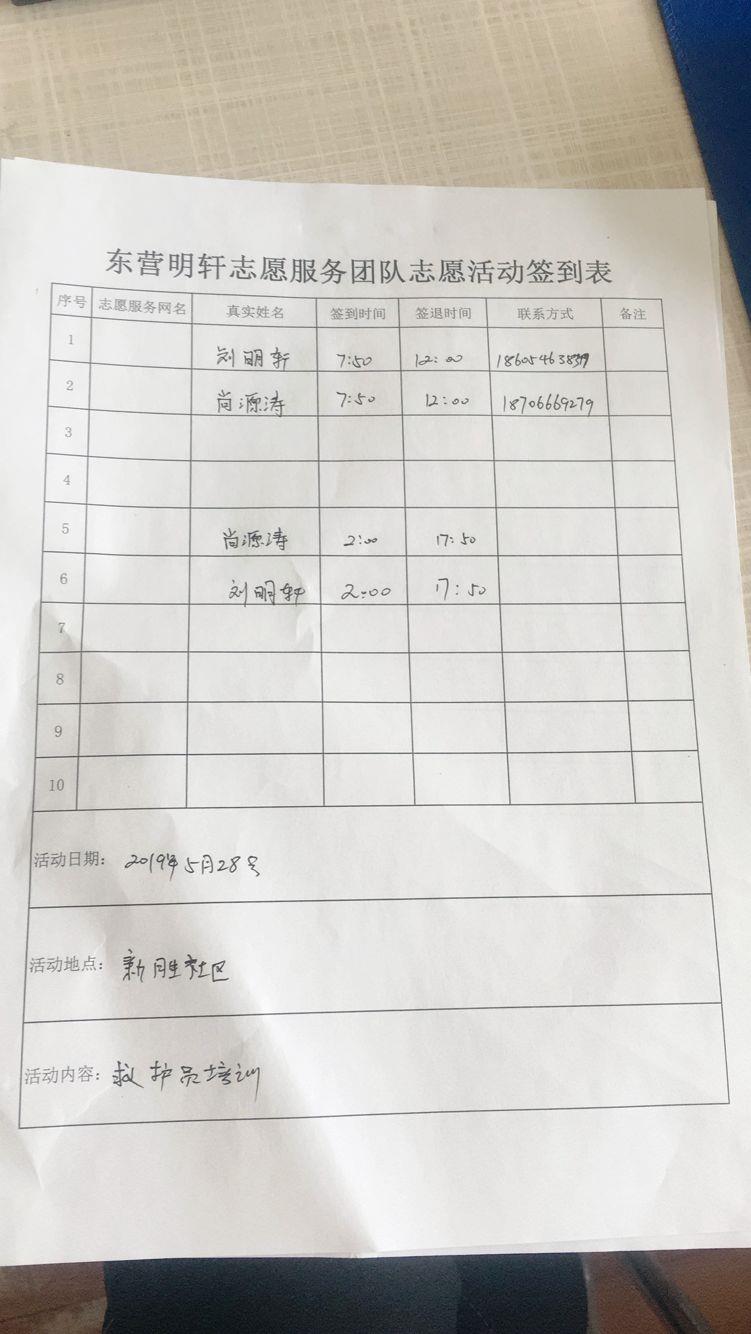 东营明轩志愿服务团队志愿活动签到表
序号 志愿服务网名 真实姓名 签到时间 签退时间 联系方式 备注
1 刘明轩 7:50 12:00
2 尚源涛 7:50 12:00 18706669279
3
4
5 尚源涛 2:00 17:50
6 刘明轩 2:00 17:50
7
8
9
10
活动日期: 2019年5月28号
活动地点: 新胜社区
活动内容: 救护员培训